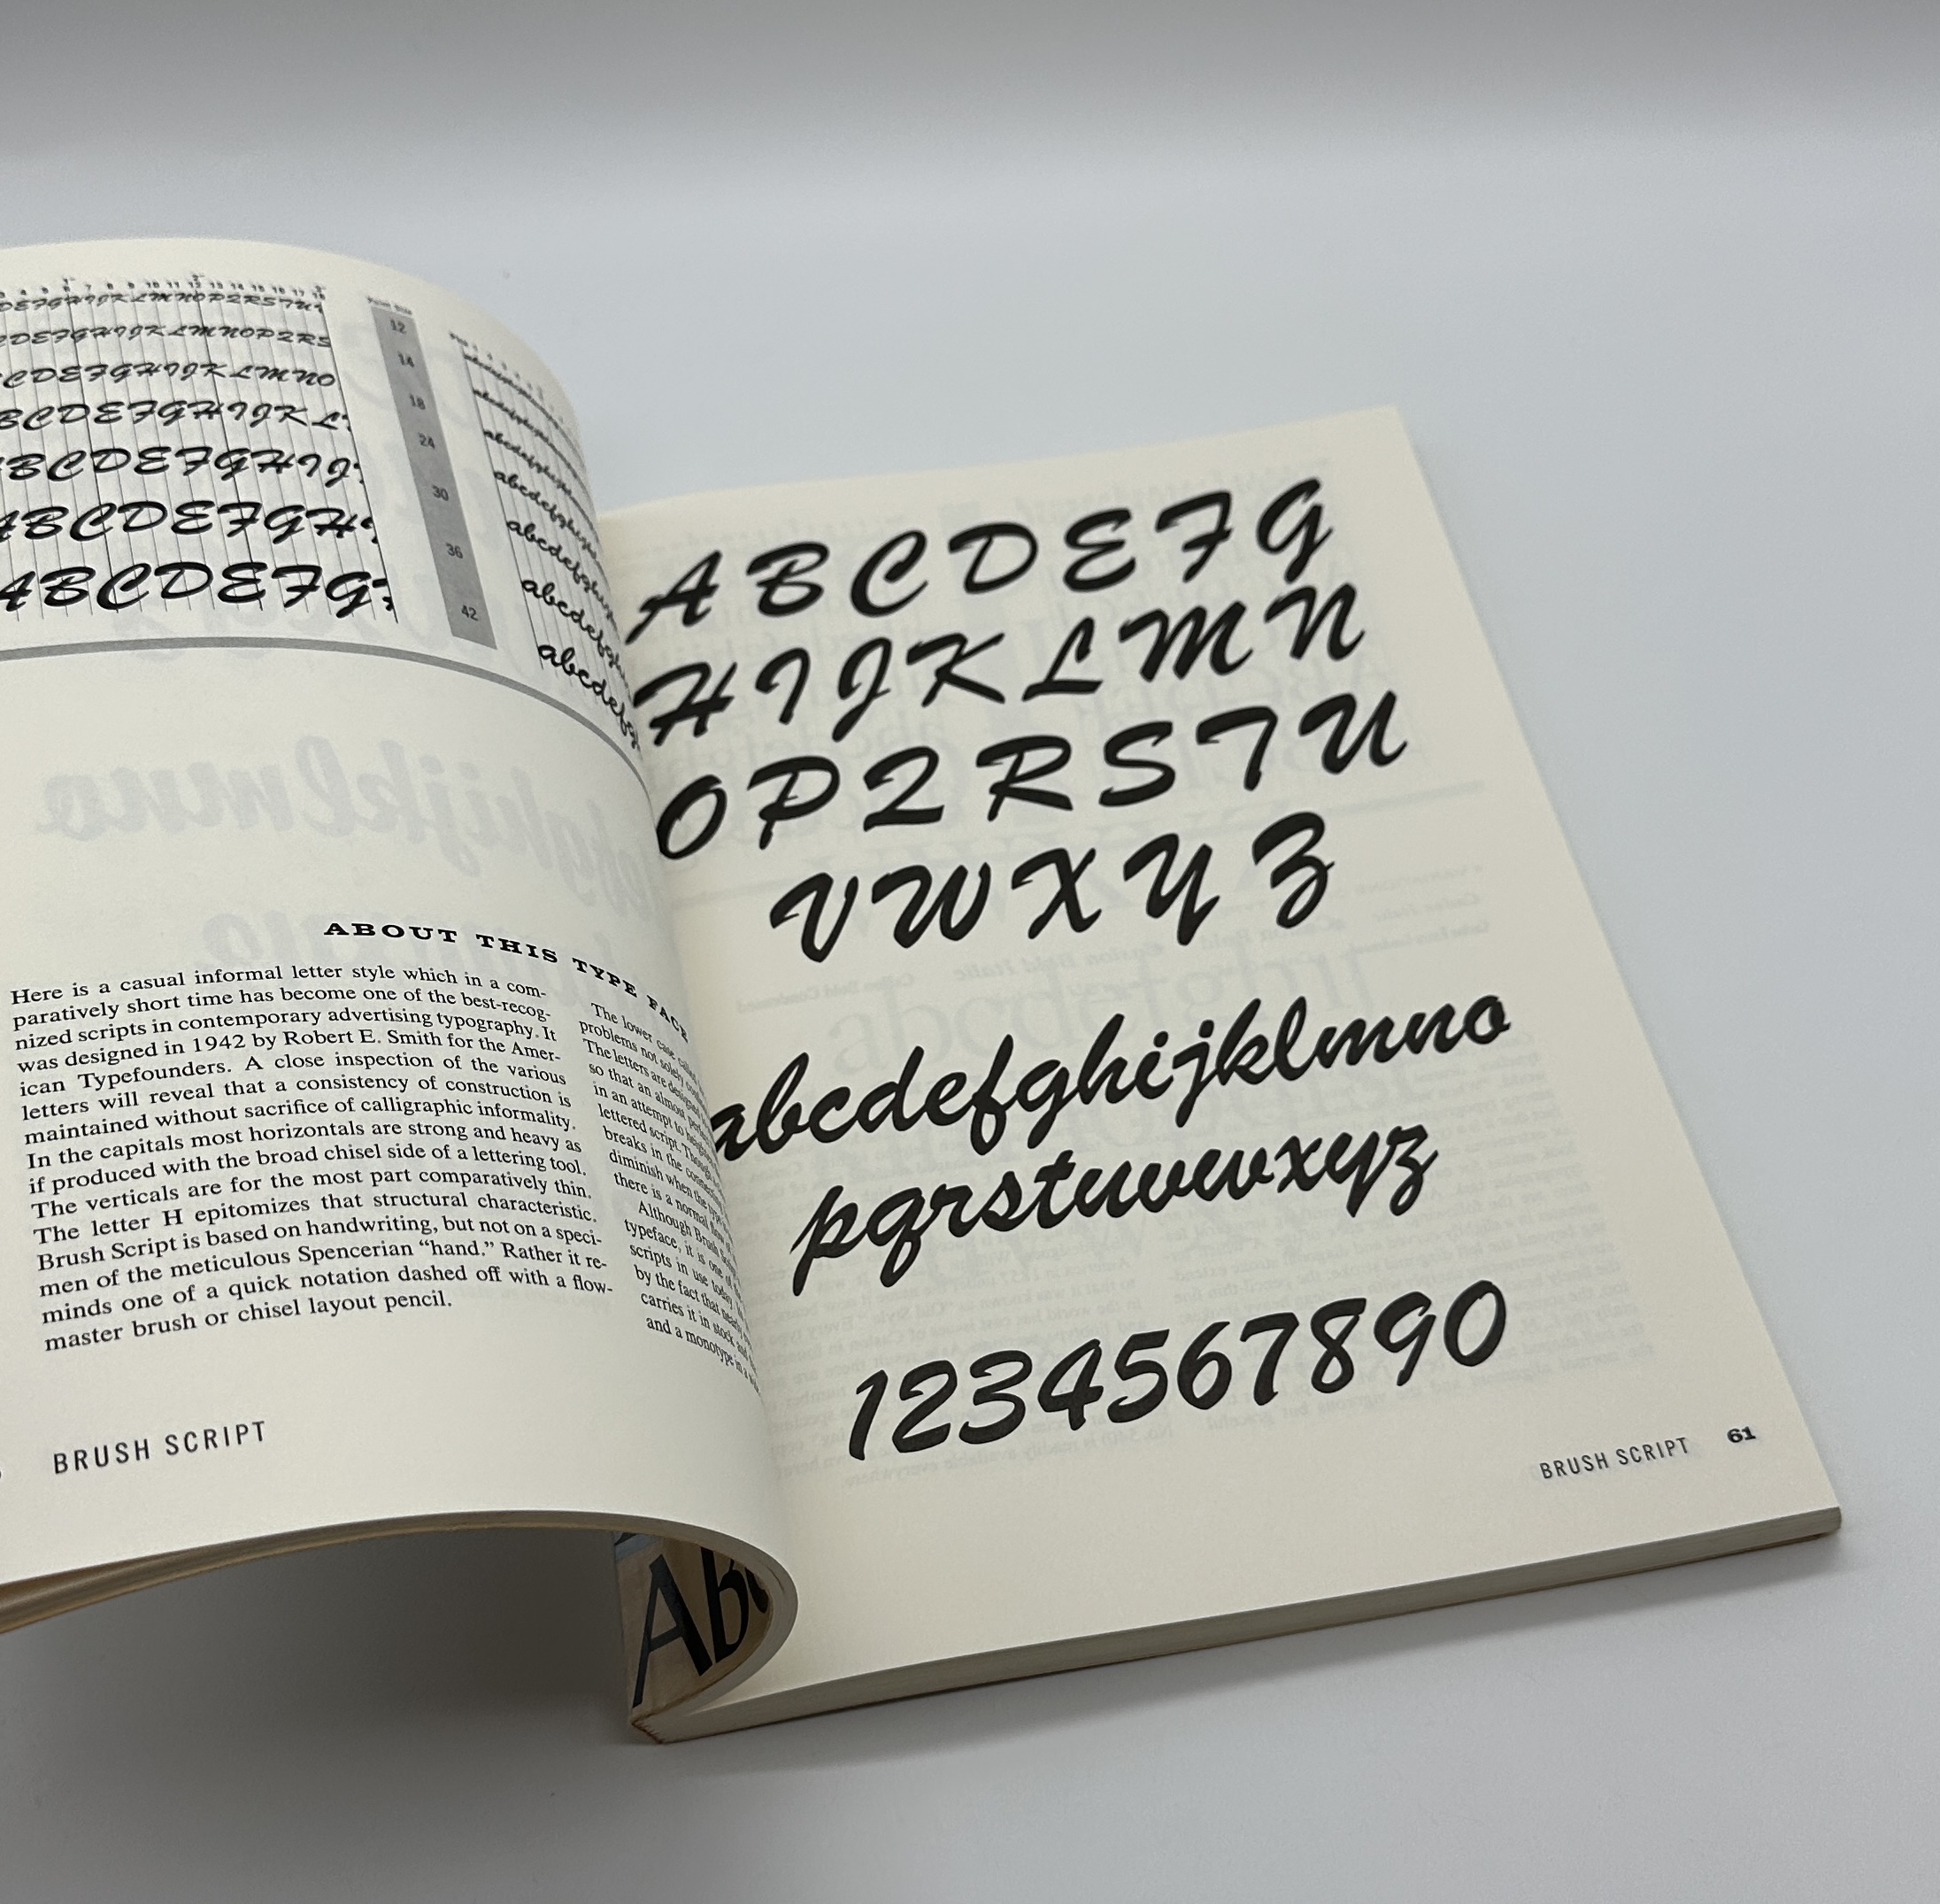 3 4 5 6 7 8 9 10 11 12 13 14 15 16 17 18
DEFGHIJKLMNOPQRSTU
CDEFGHIJKLMNOPQRS
CDEFGHIJKLMNO
BCDEFGHIJKL
BCDEFGHIJ
ABCDEFGH
ABCDEFG
Point Size
12
14
18
24
30
36
42
abcdefghijk
abcdefghi
abcdefgh
abcdefg
ABOUT THIS TYPE FACE
Here is a casual informal letter style which in a com-
paratively short time has become one of the best-recog-
nized scripts in contemporary advertising typography. It
was designed in 1942 by Robert E. Smith for the Amer-
ican Typefounders. A close inspection of the various
letters will reveal that a consistency of construction is
maintained without sacrifice of calligraphic informality.
In the capitals most horizontals are strong and heavy as
if produced with the broad chisel side of a lettering tool.
The verticals are for the most part comparatively thin.
The letter H epitomizes that structural characteristic.
Brush Script is based on handwriting, but not on a speci-
men of the meticulous Spencerian “hand.” Rather it re-
minds one of a quick notation dashed off with a flow-
master brush or chisel layout pencil.
The lower case
problems not solely
The letters are designed
so that an almost
in an attempt to
lettered script. Though
breaks in the
diminish when the type
there is a normal flow
Although Brush
typeface, it is one of
scripts in use today.
by the fact that nearly
carries it in stock and
and a monotype
BRUSH SCRIPT
A B C D E F G
H I J K L M N
O P Q R S T U
V W X Y Z
abcdefghijklmno
pqrstuvwxyz
1234567890
BRUSH SCRIPT 61
AB